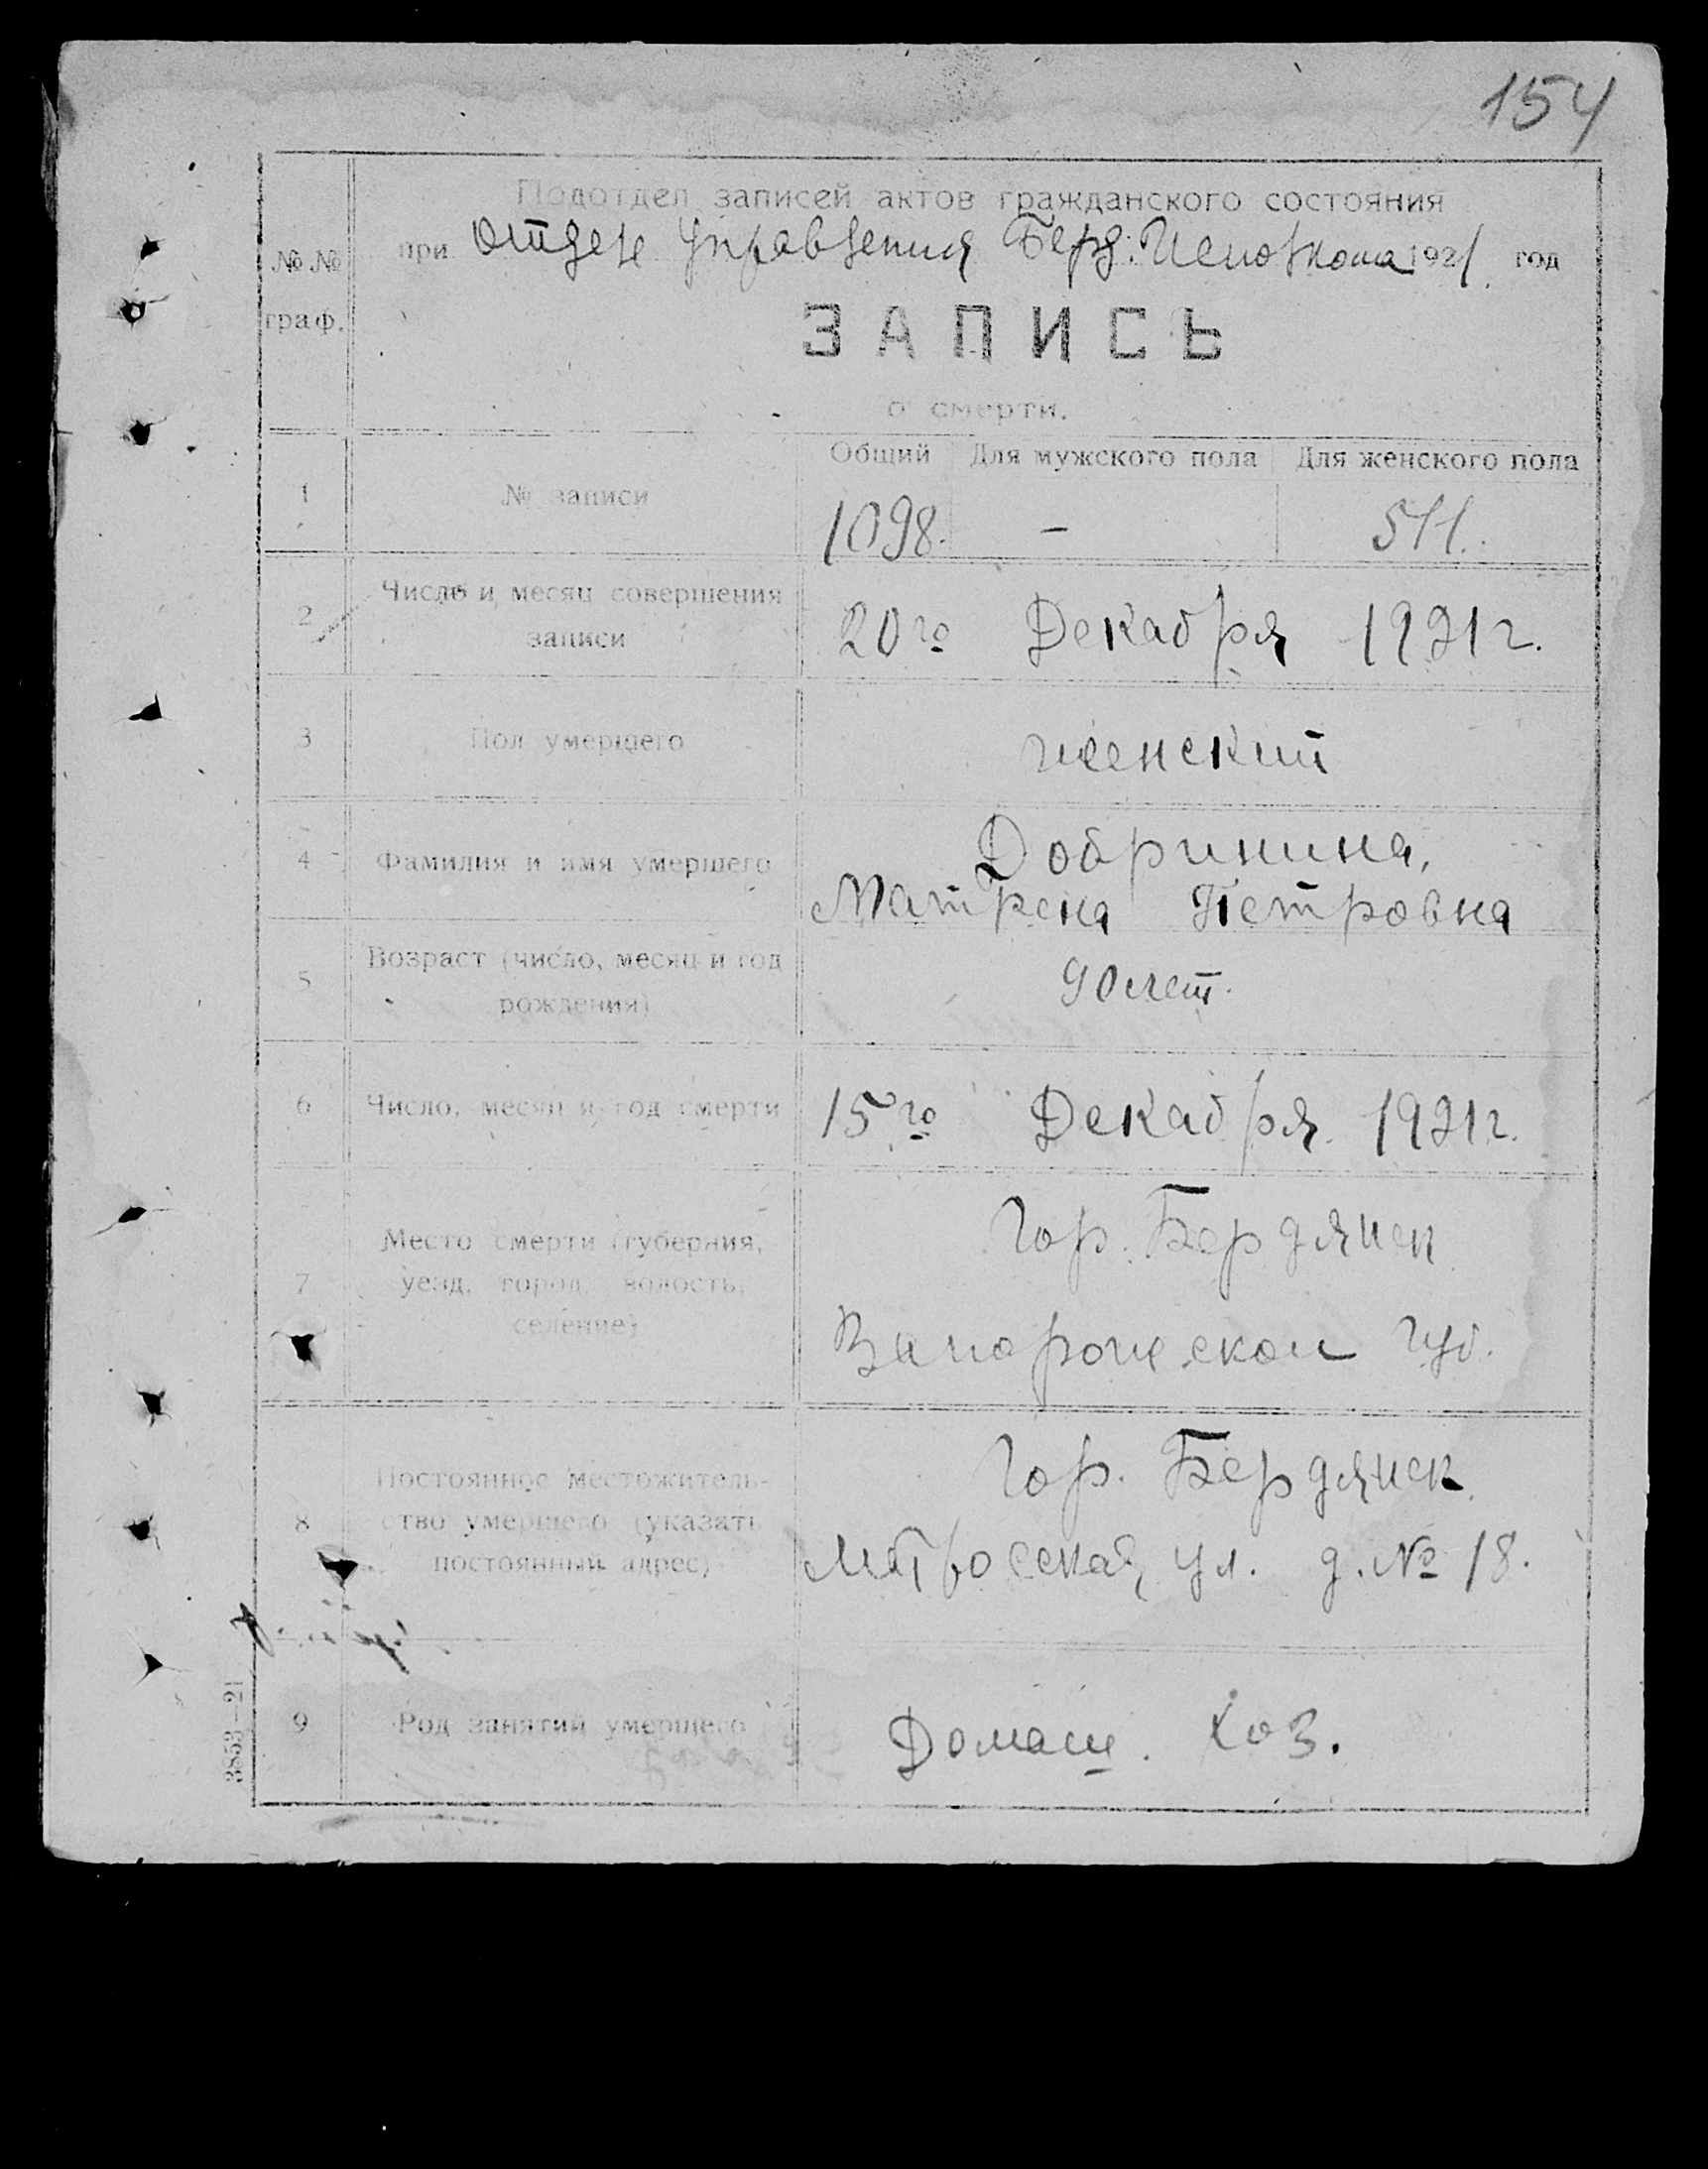 154
Подотдел записей актов гражданского состояния
№№ граф.
при Отделе Управления Берд. Исполкома 1921 год
ЗАПИСЬ
о смерти.
Общий Для мужского пола Для женского пола
1 № записи 1098. – 511.
2 Число и месяц совершения
записи 20го Декабря 1921 г.
3 Пол умершего женский
Добринина,
4 Фамилия и имя умершего
Матрена Петровна
5 Возраст (число, месяц и год
рождения) 90 лет.
6 Число, месяц и год смерти 15го Декабря 1921 г.
Гор. Бердянск
7 Место смерти (губерния,
уезд, город, волость,
селение)
Запорожской губ.
Гор. Бердянск
8 Постоянное местожитель-
ство умершего (указать
постоянный адрес)
Мтросская ул. д. № 18.
9 Род занятий умершего Домаш. Хоз.
3853—21